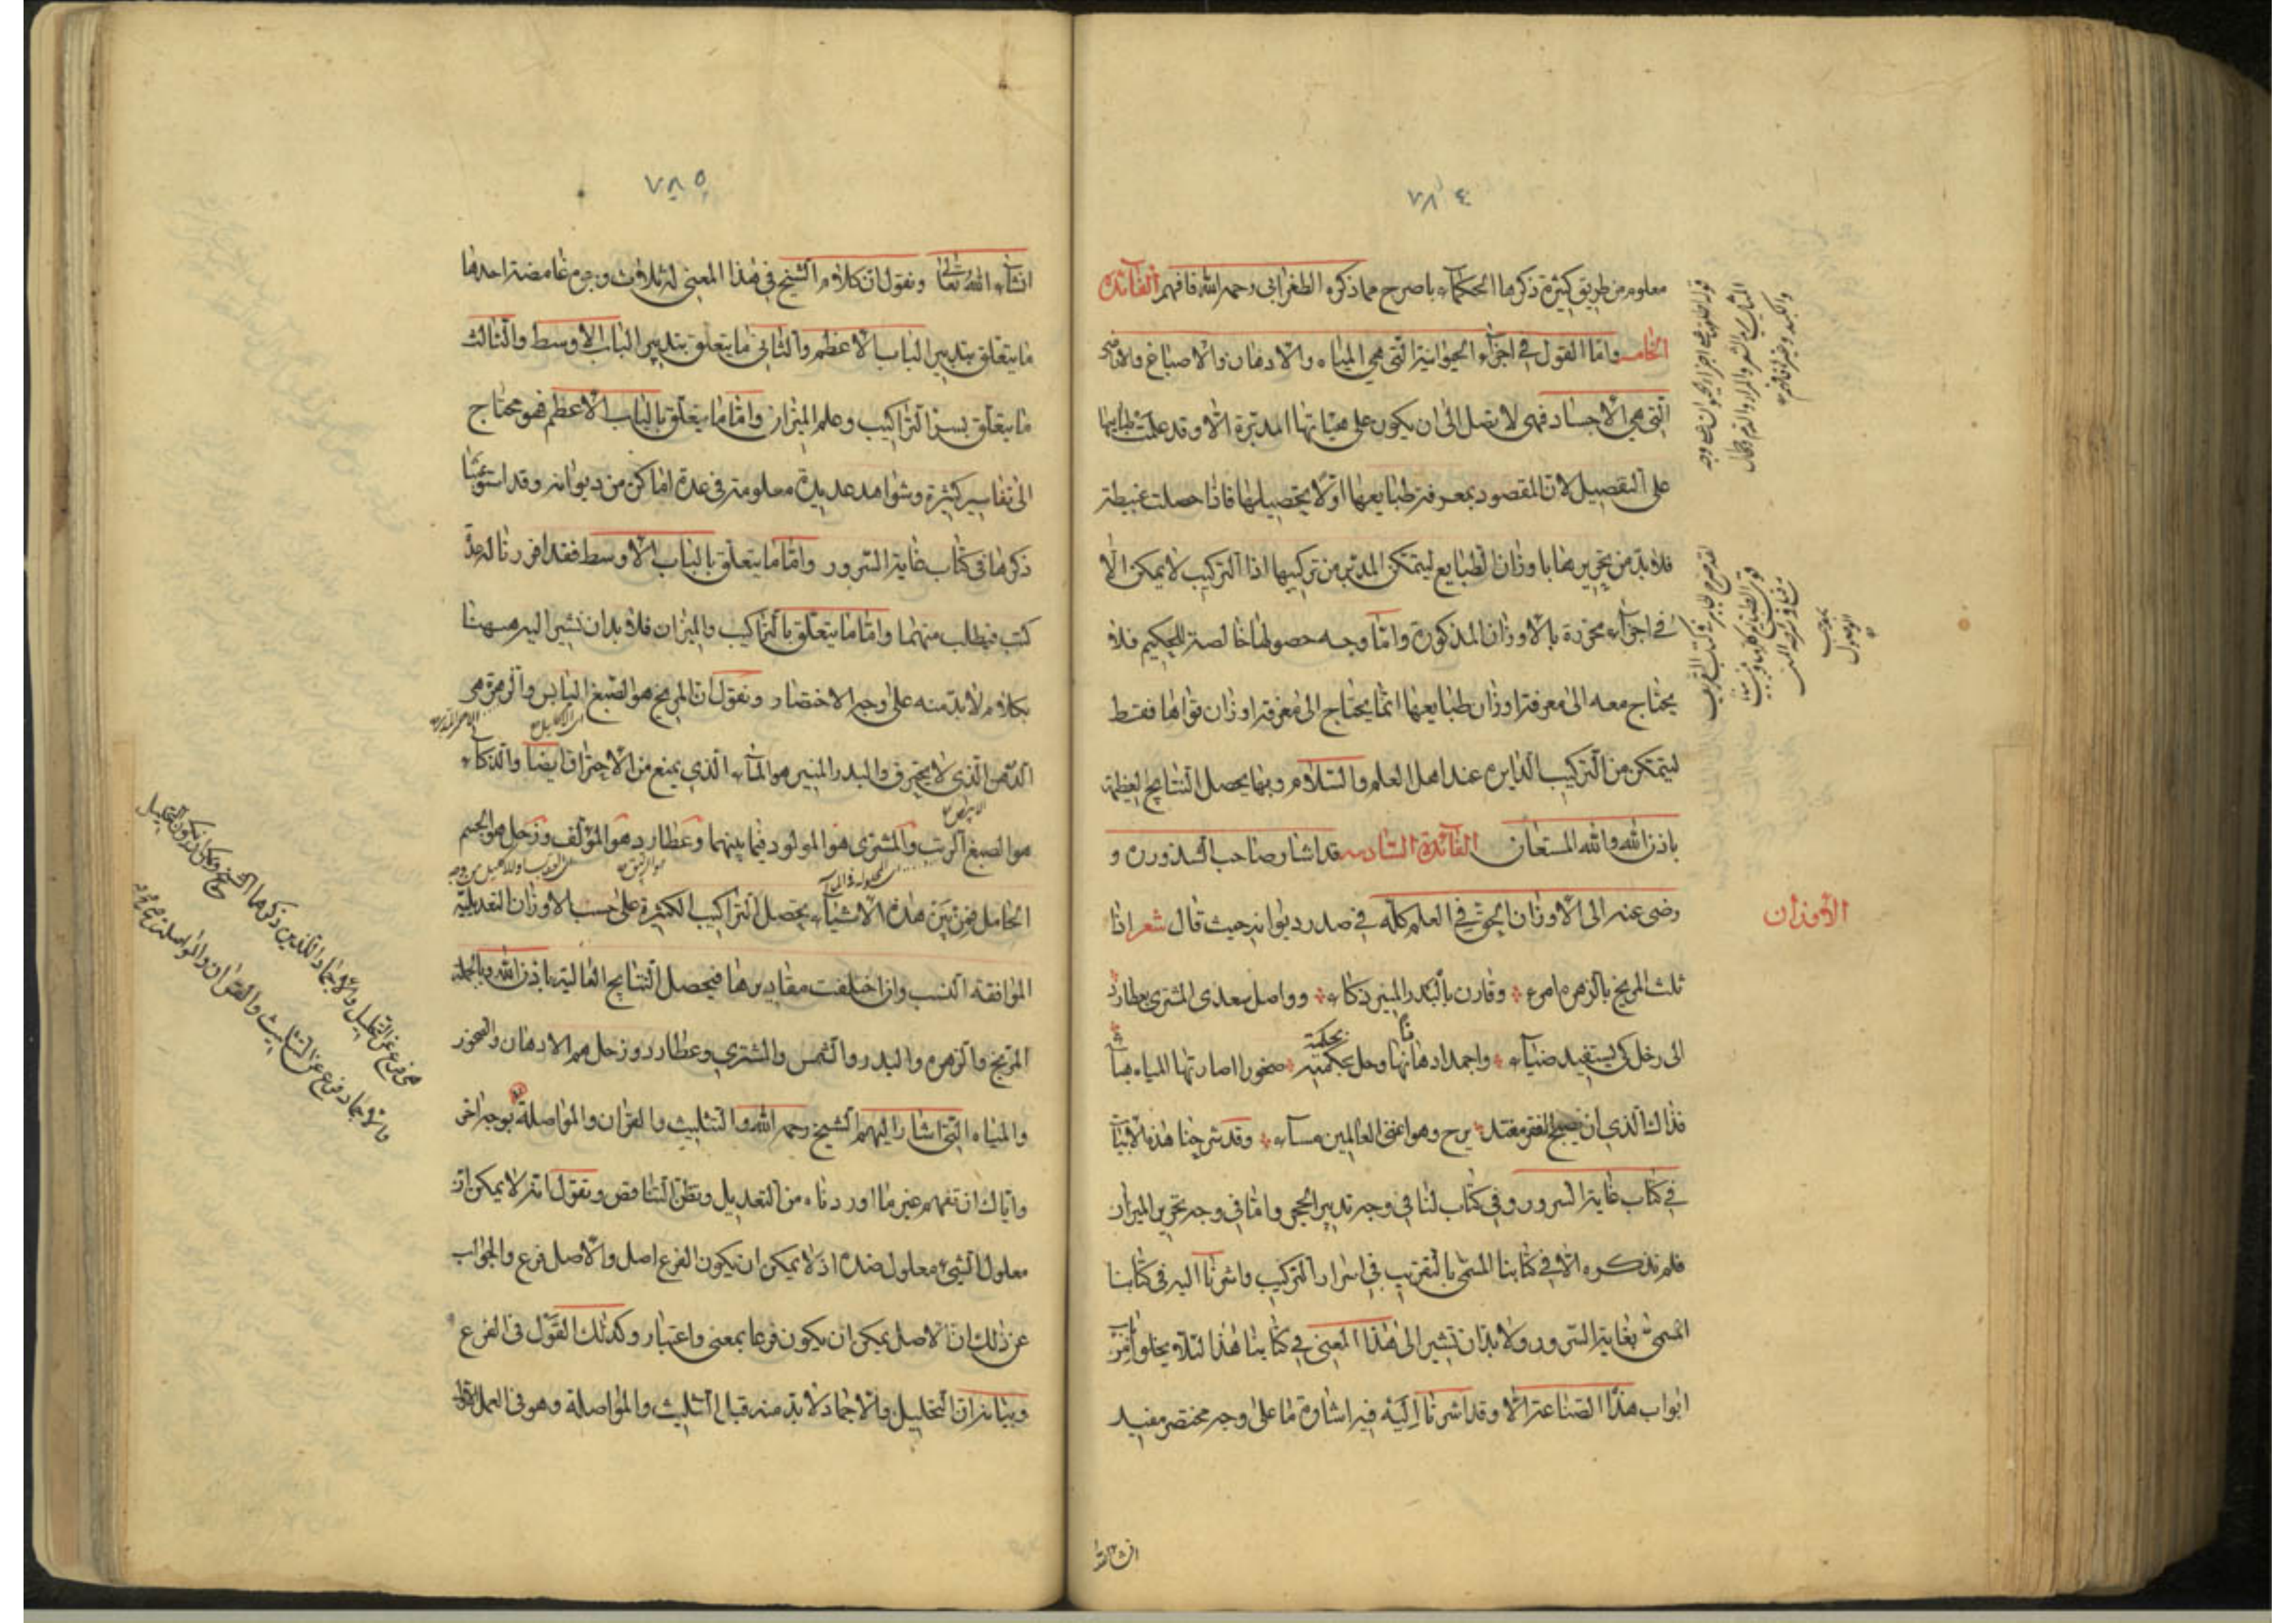 ٧٨٤
معلوم من طريق كثيرة ذكرها الحكماء باصرح مما ذكره الطغرائي رحمه الله فافهم الفائدة
الخامسه واما القول في اجزاء الحيوانية التي هي المياه والادهان والاصباغ والاراضى
التي هي الاجساد فهى لا تصل الى ان يكون على هيئاتها المدبرة الا وقد علمت طبايعها
على التفصيل لان المقصود بمعرفة طبايعها اولا تحصيلها فاذا حصلت غبيطة
فلا بد من تحريرها باوزان الطبايع ليتمكن المدبر من تركيبها اذا التركيب لا يمكن الا
في اجزاء محررة بالاوزان المذكورة واما وجه حصولها خالصة للحكيم فلا
يحتاج معه الى معرفة اوزان طبايعها انما يحتاج الى معرفة اوزان قواها فقط
ليتمكن من التركيب الدايره عند اهل العلم والسلام وبها يحصل النتايج العظيمة
باذن الله والله المستعان الفائدة السادسه قد اشار صاحب الشذور ره و
رضى عنه الى الاوزان الحق في العلم كله في صدر ديوانه حيث قال شعر اذا
الاوزان
ثلث المريخ بالزهره امرء وقارن بالبدر المنير ذكاء وواصل سعدى المشترى بعطارد
الى زحل كى يستفيد ضياء واجمد ادهانها وحل بحكمة صخورا اصارتها المياه هباء
فذاك الذي ان يصبح الفقر مغتد يرح وهو اغنى العالمين مساء وقد شرحنا هذه الابيات
في كتاب غاية السرور وفي كتاب لنا في وجه تدبير الحجر واما في وجه تحرير الميزان
فلم نذكره الا في كتابنا المسمى بالتقريب في اسرار التركيب واشرنا اليه في كتابنا
المسمى بغاية السرور ولا بد ان نشير الى هذا المعنى في كتابنا هذا لئلا يخلو باب من
ابواب هذه الصناعة الا وقد اشرنا اليه فيه اشارة ما على وجه مختصر مفيد
انشاء الله
٧٨٥
انشاء الله تعالى ونقول ان كلام الشيخ في هذا المعنى له ثلاث وجوه غامضة احدها
ما يتعلق بتدبير الباب الاعظم والثاني ما يتعلق بتدبير الباب الاوسط والثالث
ما يتعلق بسر التراكيب وعلم الميزان واما ما يتعلق بالباب الاعظم فهو محتاج
الى تفاسير كثيرة وشواهد عديدة معلومة في عدة اماكن من ديوانه وقد استوعبنا
ذكرها في كتاب غاية السرور واما ما يتعلق بالباب الاوسط فقد افردنا له عدة
كتب فيطلب منهما واما ما يتعلق بالتراكيب والميزان فلا بد ان نشير اليه ههنا
بكلام لا بد منه على وجه الاختصار ونقول ان المريخ هو الصبغ اليابس والزهرة هى
الدهن الذى لا يحترق والبدر المنير هو الماء الذي يمنع من الاحتراق ايضا والذكاء
هو الصبغ الرب والمشترى هو المولود فيما بينهما وعطارد هو المؤلف وزحل هو الجسم
الحامل فمن بين هذه الاشياء يحصل التراكيب الكثيرة على حسب الاوزان التعديلية
الموافقة النسب وان اختلفت مقاديرها فيحصل النتايج الغالية باذن الله وبالجملة
المريخ والزهره والبدر والشمس والمشتري وعطارد وزحل هم الادهان والصخور
والمياه التي اشار اليهم الشيخ رحمه الله والتثليث والقران والمواصلة بوجه اخر
واياك ان تفهم غير ما اوردناه من التعديل وتظن التناقض وتقول انه لا يمكن ان
معلول الشيء معلول ضده اذ لا يمكن ان يكون الفرع اصل والاصل فرع والجواب
عن ذلك ان الاصل يمكن ان يكون فرعا بمعنى واعتبار وكذلك القول في الفرع
وبيانه ان التحليل والاجماد لا بد منه قبال التثليث والمواصلة وهو في العمل الاول